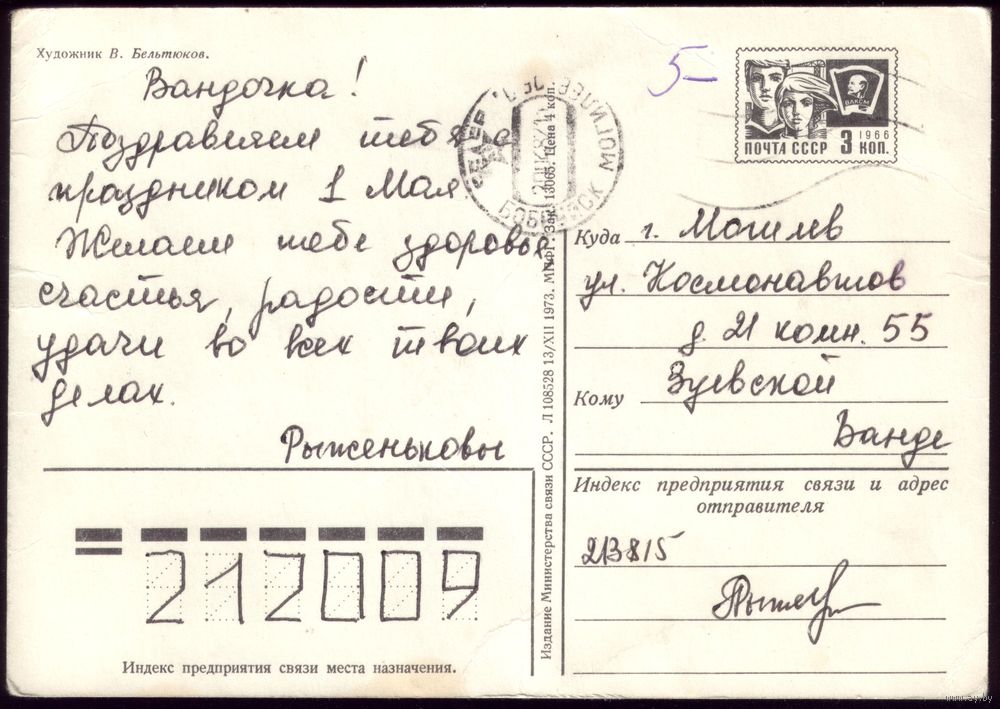 Художник В. Бельтюков.
Вандочка!
Поздравляем тебя с
праздником 1 Мая
Желаем тебе здоровья,
счастья, радости,
удачи во всех твоих
делах.
Рыженьковы
212009
Индекс предприятия связи места назначения.
Издание Министерства связи СССР. Л 108528 13/XII 1973, МПФГ. Зак. 13065. Цена 4 коп.
5-
БОБРУЙСК МОГИЛЕВ
1966
ПОЧТА СССР 3 КОП.
ВЛКСМ
Куда г. Могилев
ул. Космонавтов
д. 21 комн. 55
Кому Зуевской
Ванде
Индекс предприятия связи и адрес
отправителя
213815
www.ay.by